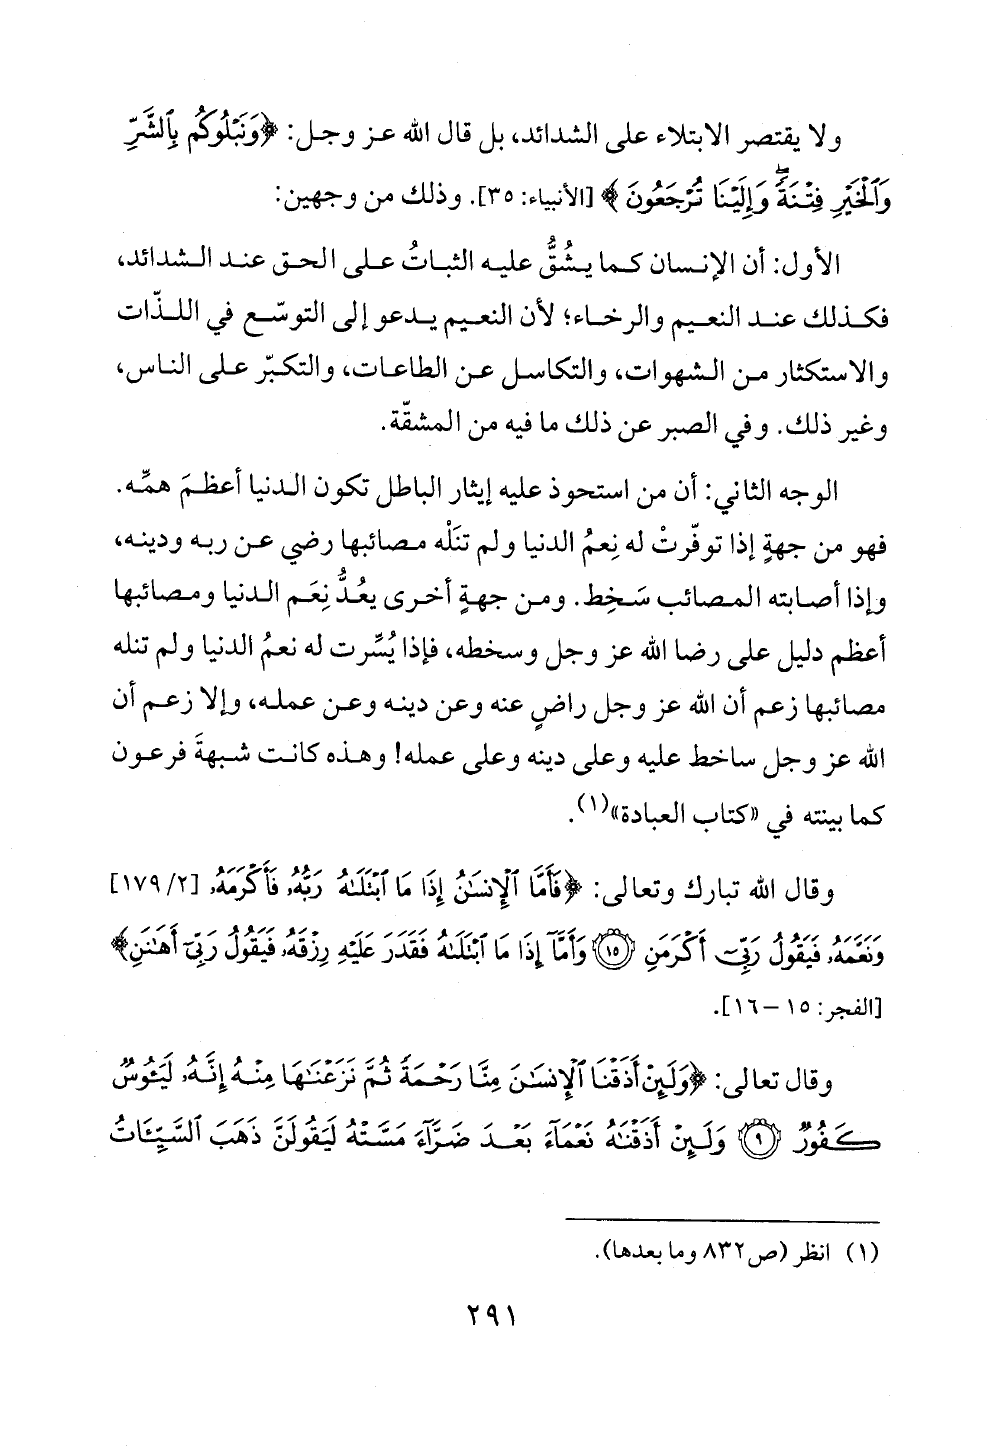 ولا يقتصر الابتلاء على الشدائد، بل قال الله عز وجل: ﴿وَنَبْلُوكُم بِٱلشَّرِّ
وَٱلْخَيْرِ فِتْنَةً ۖ وَإِلَيْنَا تُرْجَعُونَ﴾ [الأنبياء: ٣٥]. وذلك من وجهين:
الأول: أن الإنسان كما يشُقُّ عليه الثباتُ على الحق عند الشدائد،
فكذلك عند النعيم والرخاء؛ لأن النعيم يدعو إلى التوسّع في اللذّات
والاستكثار من الشهوات، والتكاسل عن الطاعات، والتكبّر على الناس،
وغير ذلك. وفي الصبر عن ذلك ما فيه من المشقّة.
الوجه الثاني: أن من استحوذ عليه إيثار الباطل تكون الدنيا أعظمَ همِّه.
فهو من جهةٍ إذا توفّرتْ له نِعمُ الدنيا ولم تنَلْه مصائبها رضي عن ربه ودينه،
وإذا أصابته المصائب سَخِط. ومن جهةٍ أخرى يعُدُّ نِعَم الدنيا ومصائبها
أعظم دليل على رضا الله عز وجل وسخطه، فإذا يُسِّرت له نعمُ الدنيا ولم تنله
مصائبها زعم أن الله عز وجل راضٍ عنه وعن دينه وعن عمله، وإلا زعم أن
الله عز وجل ساخط عليه وعلى دينه وعلى عمله! وهذه كانت شبهةَ فرعون
كما بينته في «كتاب العبادة»(١).
وقال الله تبارك وتعالى: ﴿فَأَمَّا ٱلْإِنسَٰنُ إِذَا مَا ٱبْتَلَىٰهُ رَبُّهُۥ فَأَكْرَمَهُۥ [٢/١٧٩]
وَنَعَّمَهُۥ فَيَقُولُ رَبِّىٓ أَكْرَمَنِ ١٥ وَأَمَّآ إِذَا مَا ٱبْتَلَىٰهُ فَقَدَرَ عَلَيْهِ رِزْقَهُۥ فَيَقُولُ رَبِّىٓ أَهَٰنَنِ﴾
[الفجر: ١٥ - ١٦].
وقال تعالى: ﴿وَلَئِنْ أَذَقْنَا ٱلْإِنسَٰنَ مِنَّا رَحْمَةً ثُمَّ نَزَعْنَٰهَا مِنْهُ إِنَّهُۥ لَيَـُٔوسٌ
كَفُورٌ ٩ وَلَئِنْ أَذَقْنَٰهُ نَعْمَآءَ بَعْدَ ضَرَّآءَ مَسَّتْهُ لَيَقُولَنَّ ذَهَبَ ٱلسَّيِّـَٔاتُ
(١) انظر (ص٨٣٢ وما بعدها).
٢٩١